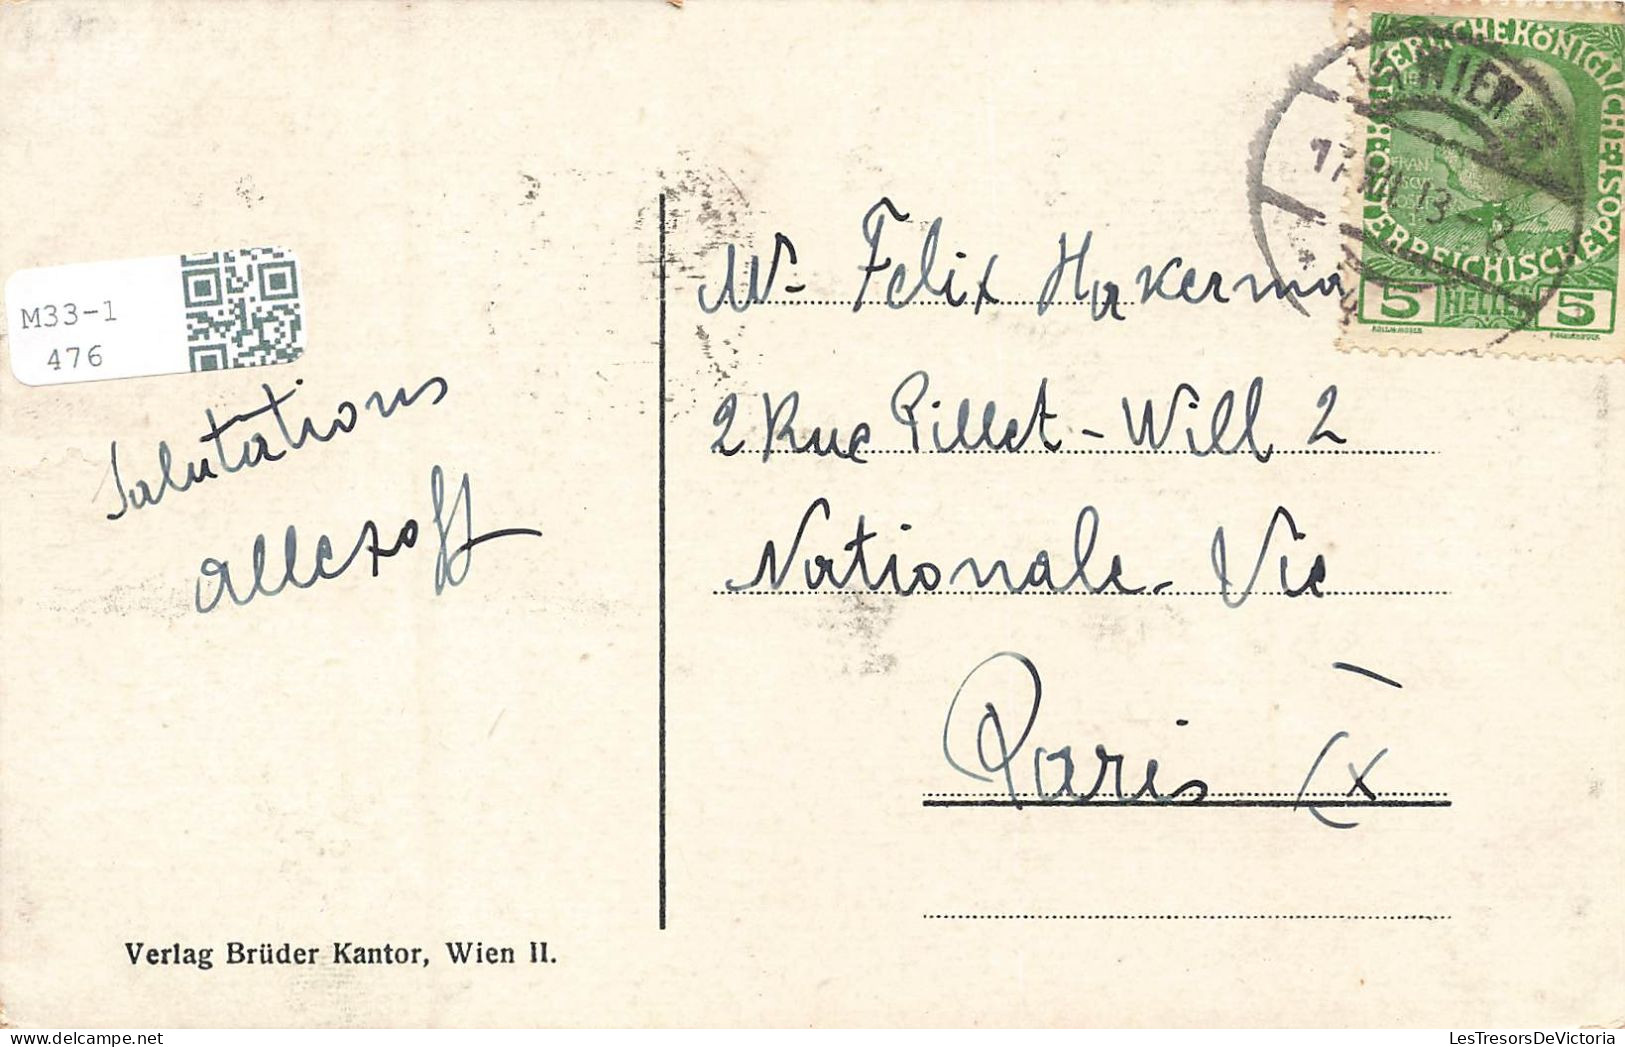 KAISERLICHE KÖNIGLICHE ÖSTERREICHISCHE POST
WIEN
17. VII. 13 - 2
5 HELLER 5
M33-1
476
Mr Felix Hakerma
2 Rue Pillet-Will 2
Nationale-Vie
Paris IX
Salutations
Allezoff
Verlag Brüder Kantor, Wien II.
LesTresorsDeVictoria